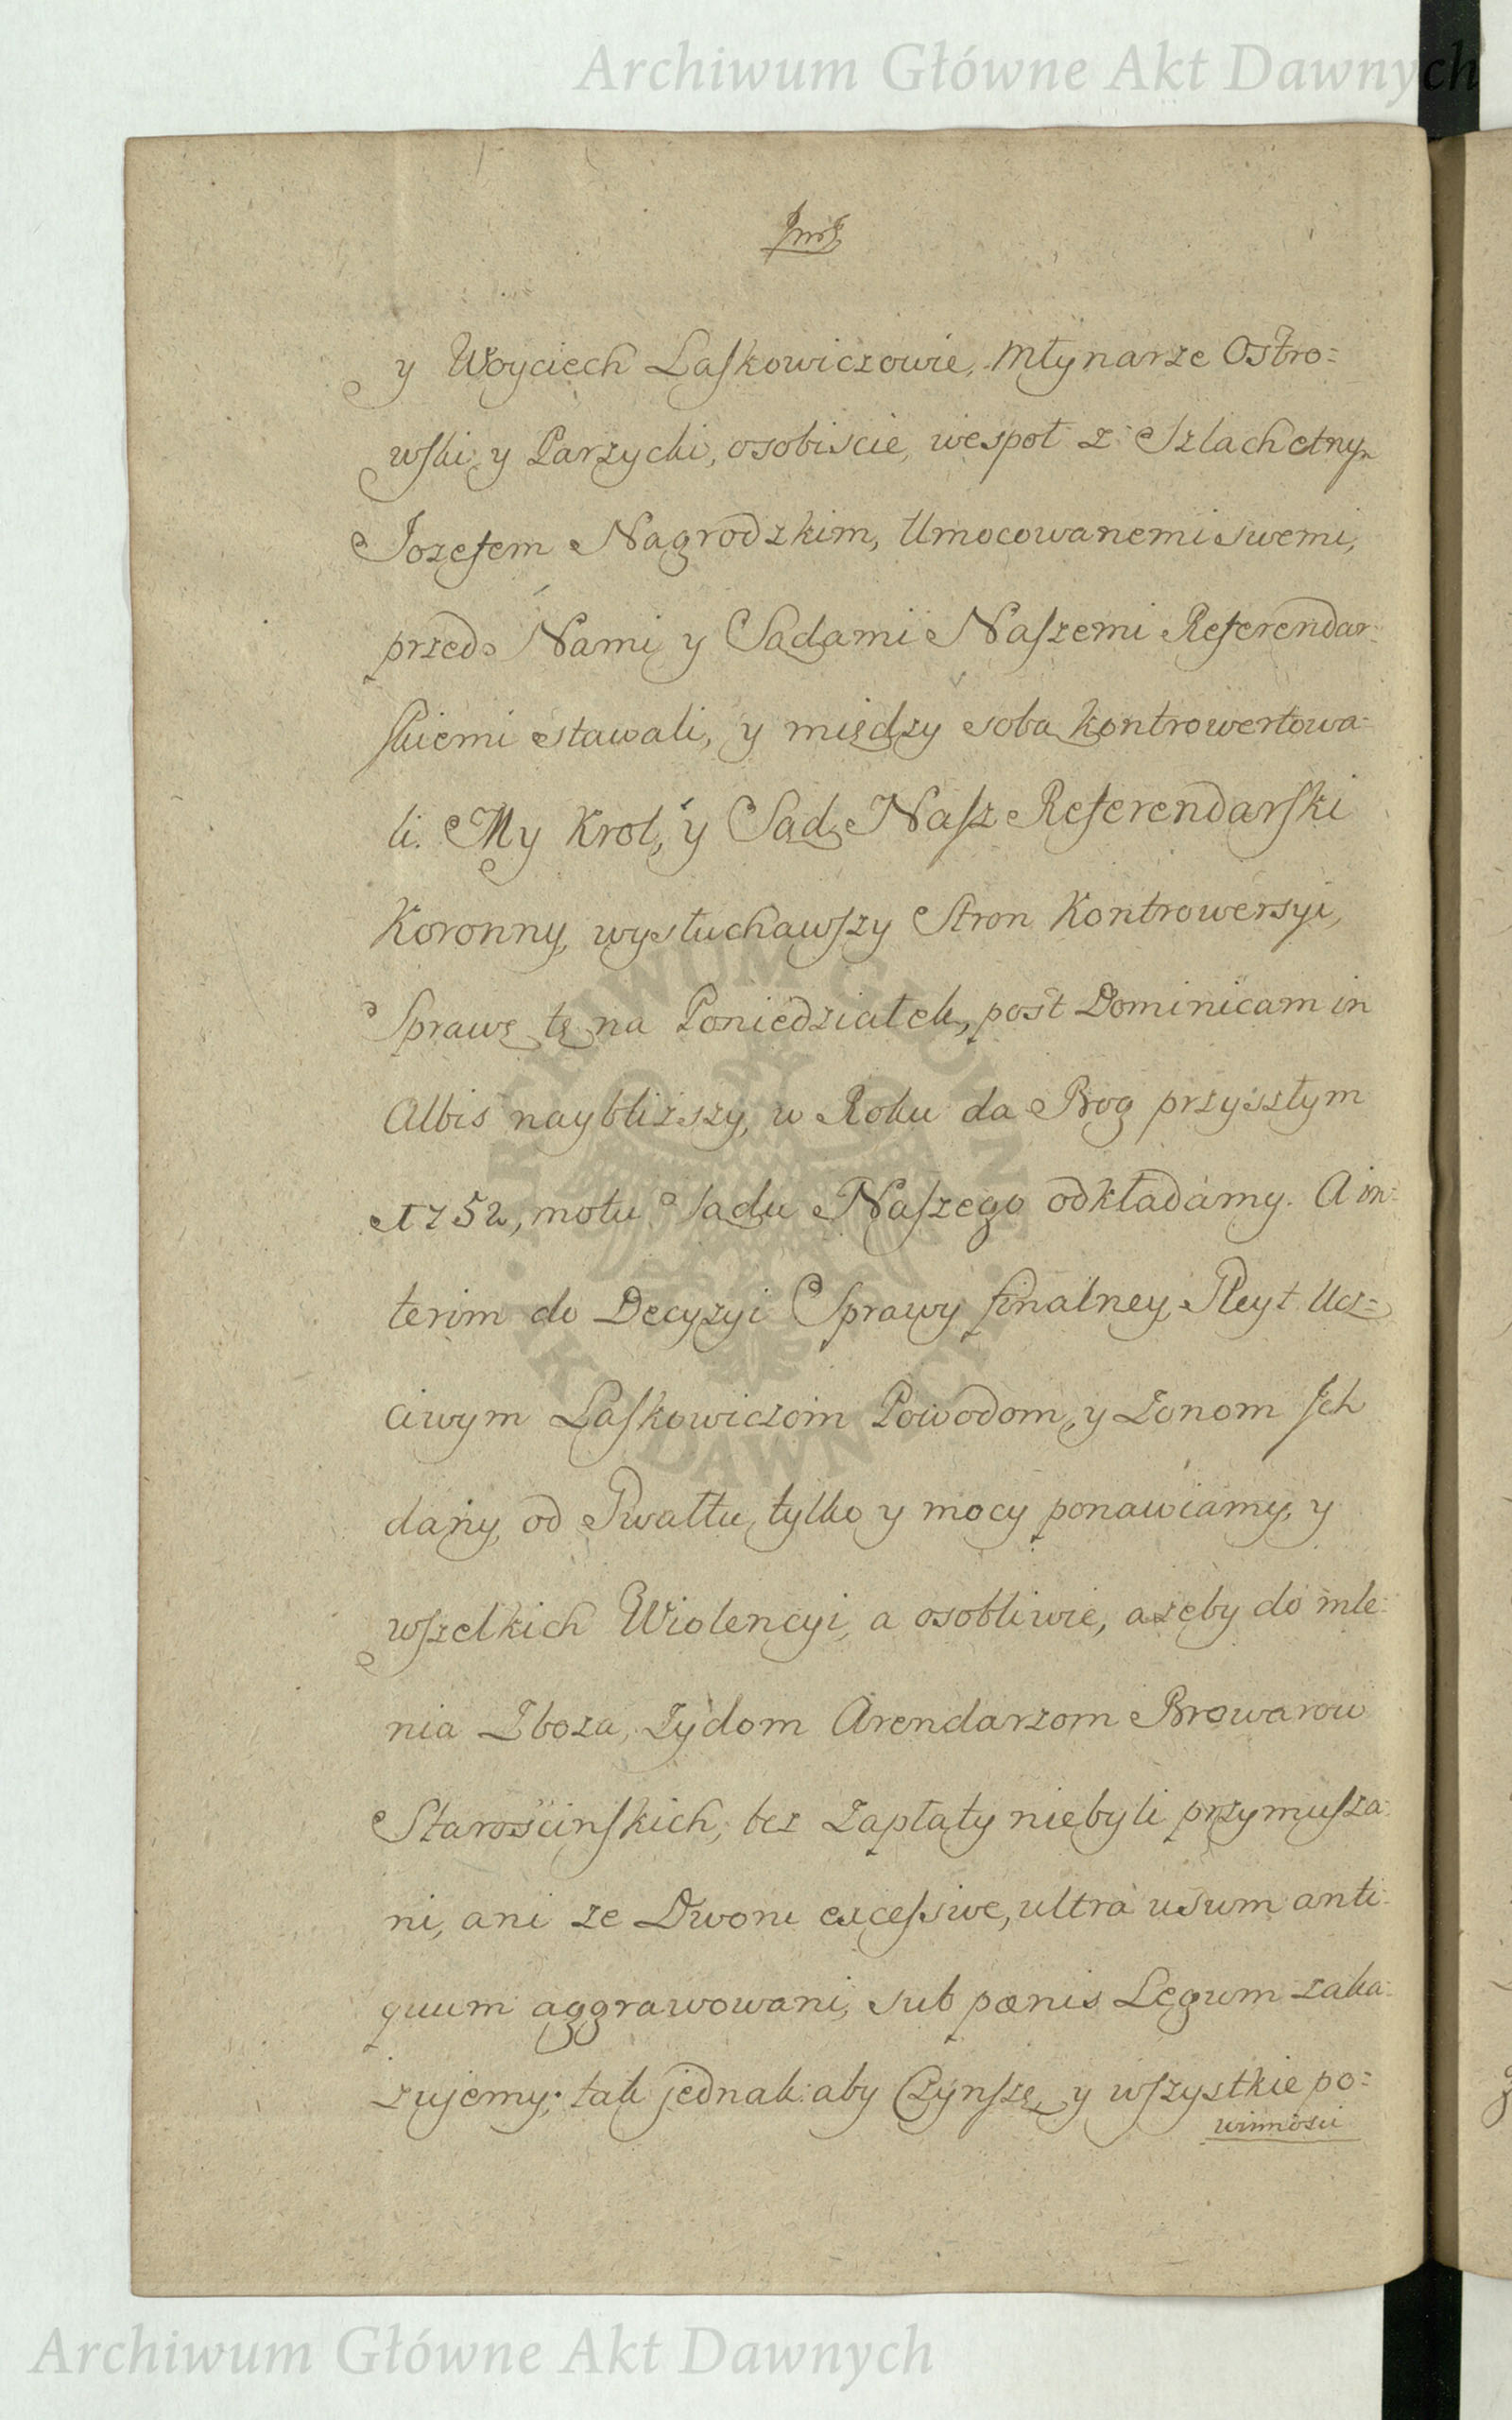 Archiwum Główne Akt Dawnych
y Woyciech Laskowiczowie, Młynarze Ostro=
wski y Parzycki, osobiscie, wespoł z Szlachetnym
Jozefem Nagrodzkim, Umocowanemi swemi,
przed Nami y Sądami Naszemi Referendar=
skiemi stawali, y między sobą kontrowertowa=
li. My Krol, y Sąd Nasz Referendarski
Koronny, wysłuchawszy Stron Kontrowersyi,
Sprawę tę na Poniedziałek, post Dominicam in
Albis naybliższy, w Roku da Bog przyszłym
1752, motu Sądu Naszego odkładamy. A in=
terim do Decyzyi Sprawy finalney, Gleyt Ucz=
ciwym Laskowiczom Powodom, y Zonom Ich
dany, od Gwałtu tylko y mocy ponawiamy, y
wszelkich Wiolencyi, a osobliwie, ażeby do mle=
nia Zboza, Zydom Arendarzom Browarow
Starościnskich, bez Zapłaty niebyli przymusza=
ni, ani ze Dworu excessive, ultra usum anti=
quum aggrawowani, sub pœnis Legum zaka=
zujemy; tak jednak aby Czynsze, y wszystkie po=
winnosci
ARCHIWUM GŁÓWNE AKT DAWNYCH
Archiwum Główne Akt Dawnych